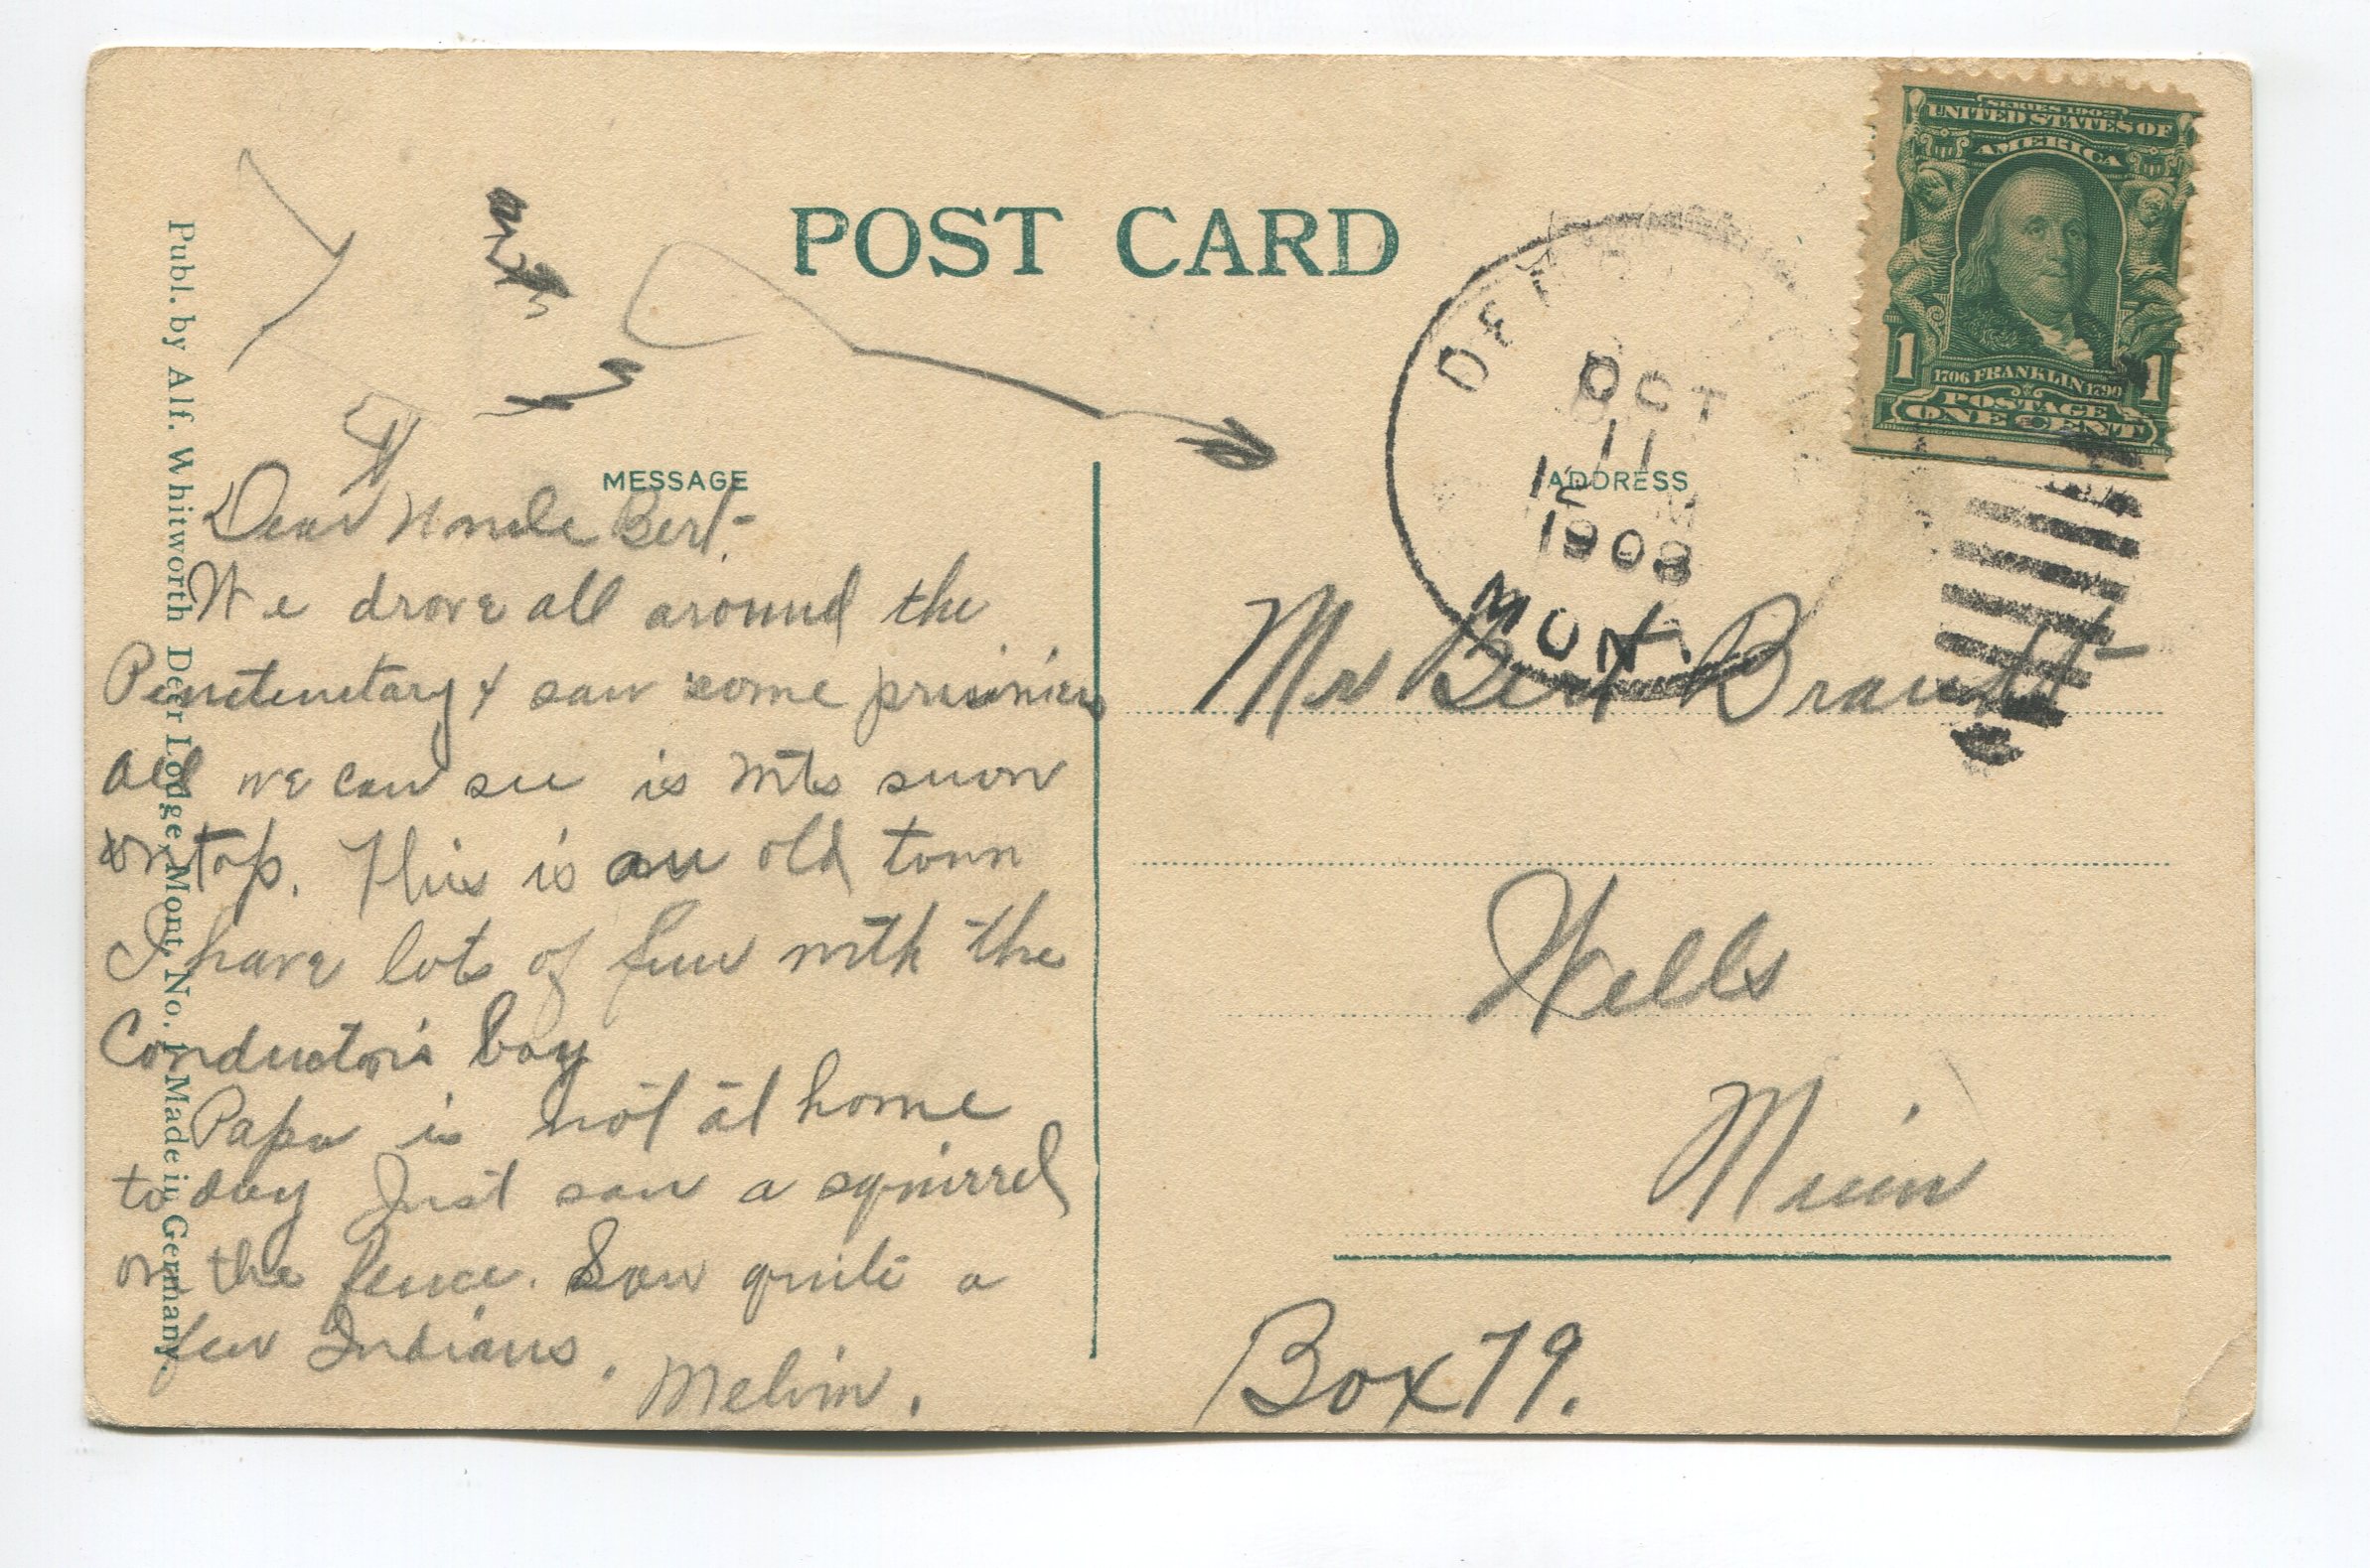 POST CARD
SERIES 1902
UNITED STATES OF
AMERICA
1 1
1706 FRANKLIN 1790
POSTAGE
ONE CENT
DEER LODGE
OCT
11
12 M
1908
MONT.
MESSAGE
ADDRESS
Dear Uncle Bert-
We drove all around the
Penetenetary & saw some prisiners
All we can see is Mts snow
on top. This is an old town
I have lots of fun with the
Conductor's boy
Papa is not at home
to day Just saw a squirrel
on the fence. Saw quite a
few Indians.
Melvin.
Mr Bert Brandt
Wells
Minn
Box 79.
Publ. by Alf. Whitworth Deer Lodge, Mont. No. 1 Made in Germany.